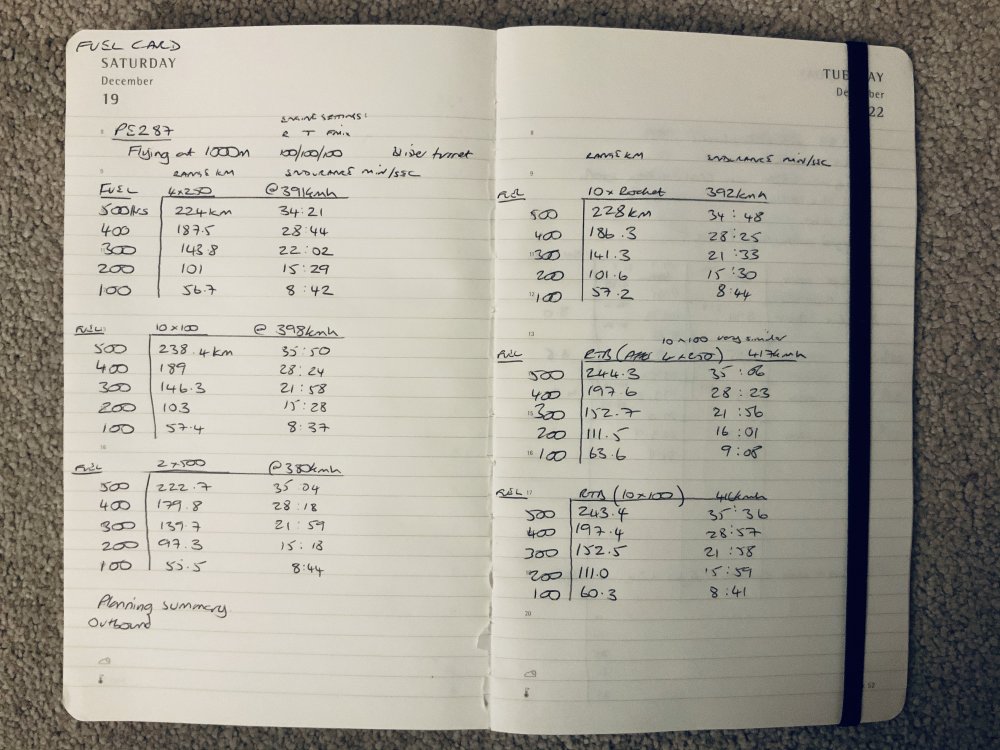 FUEL CARD
SATURDAY
December
19
PE287
ENGINE SETTINGS:
R T FMIX
Flying at 1000m 100/100/100 Blister turret
RANGE KM ENDURANCE MIN/SEC
FUEL 4x250 @391kmh
500lts 224km 34:21
400 187.5 28:44
300 143.8 22:02
200 101 15:29
100 56.7 8:42
FUEL 10x100 @ 398kmh
500 238.4km 35:50
400 189 28:24
300 146.3 21:58
200 103 15:28
100 57.4 8:37
FUEL 2x500 @380kmh
500 222.7 35:04
400 179.8 28:18
300 139.7 21:59
200 97.3 15:18
100 55.5 8:44
Planning summary
Outbound
TUE AY
De ber
22
8
RANGE KM ENDURANCE MIN/SEC
9
FUEL 10 x Rocket 392kmh
500 228km 34:48
400 186.3 28:25
300 141.3 21:33
200 101.6 15:30
12 100 57.2 8:44
13
10x100 very similar
FUEL RTB ( 4x250) 417kmh
500 244.3 35:06
400 197.6 28:23
15 300 152.7 21:56
200 111.5 16:01
16 100 63.6 9:08
FUEL 17 RTB (10x100) 416kmh
500 243.4 35:36
400 197.4 28:57
300 152.5 21:58
200 111.0 15:59
100 60.3 8:41
20